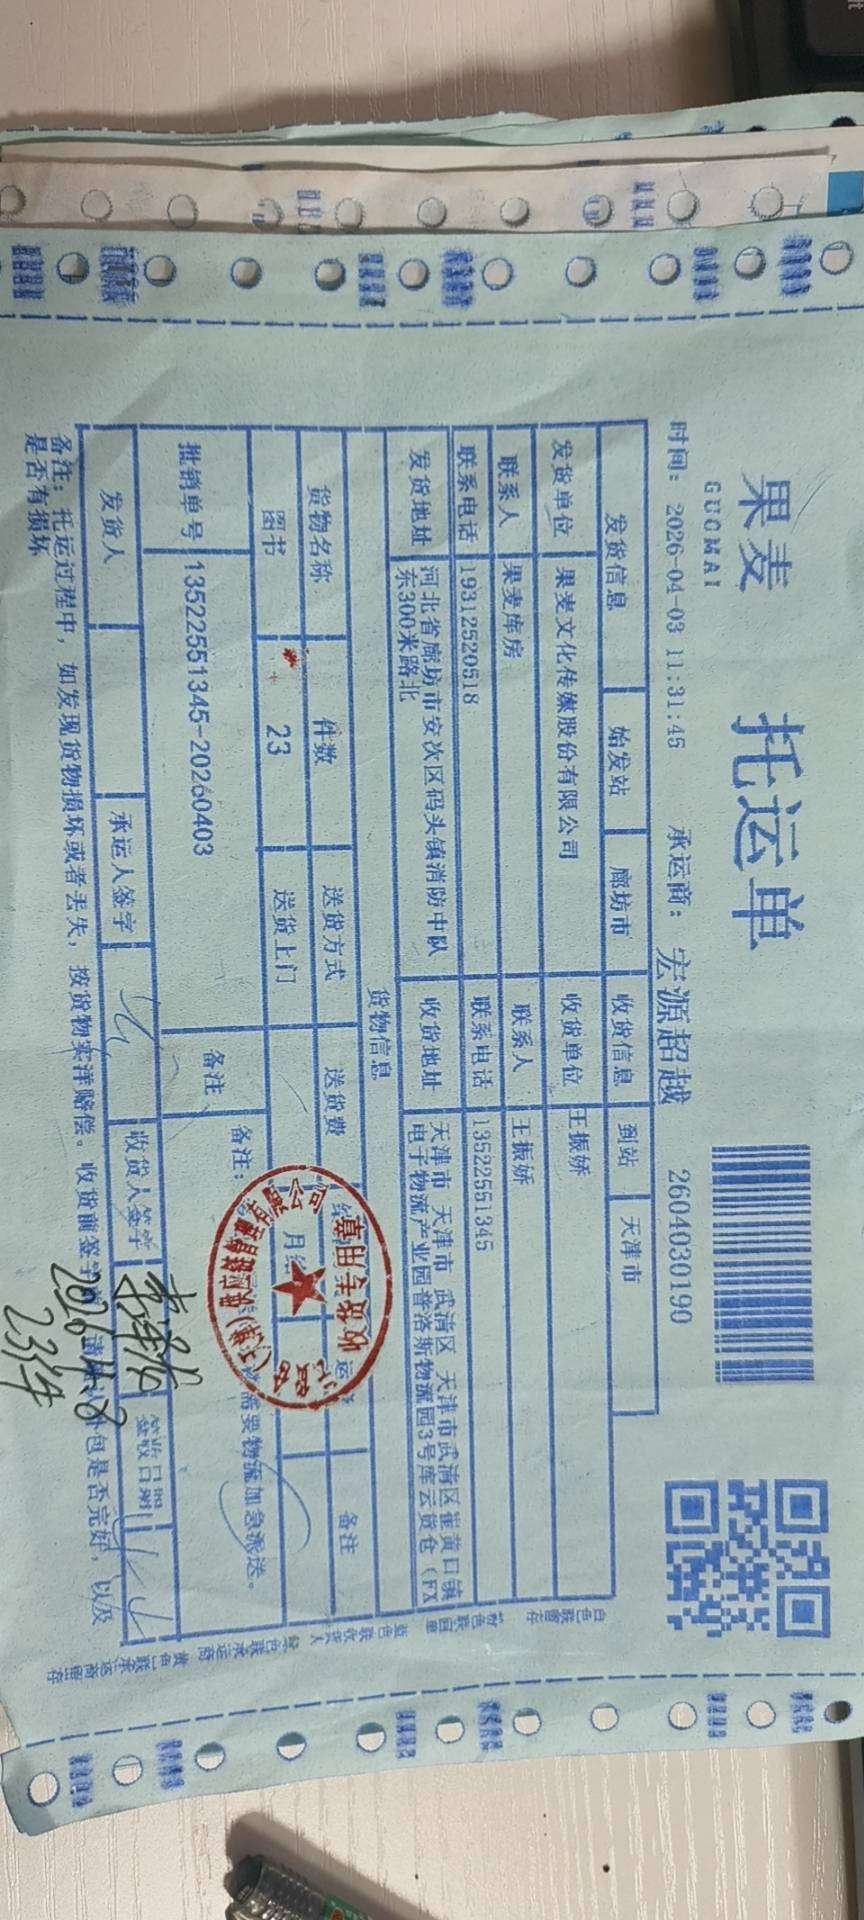 果麦
GUOMAI
托运单
时间: 2026-04-03 11:31:45
承运商: 宏源超越
2604030190
发货信息 始发站 廊坊市 收货信息 到站 天津市
发货单位 果麦文化传媒股份有限公司 收货单位 王振娇
联系人 果麦库房 联系人 王振娇
联系电话 19312520518 联系电话 13522551345
发货地址 河北省廊坊市安次区码头镇消防中队
东300米路北
收货地址 天津市 天津市 武清区 天津市武清区崔黄口镇
电子物流产业园普洛斯物流园3号库云货仓（FX
货物信息
货物名称 件数 送货方式 送货费 备注
图书 23 送货上门 月结
批销单号 13522551345-20260403 备注 备注:
需要物流加急派送。
收货专用章
发货人 承运人签字 收货人签字 签收日期
2026.4.8
23件
备注: 托运过程中，如发现货物损坏或者丢失，按货物实洋赔偿。收货前签字 请 外包是否完好，以及
是否有损坏
白色联留存 粉色联回单 蓝色联收货人 绿色联承运商 黄色联承运商留存